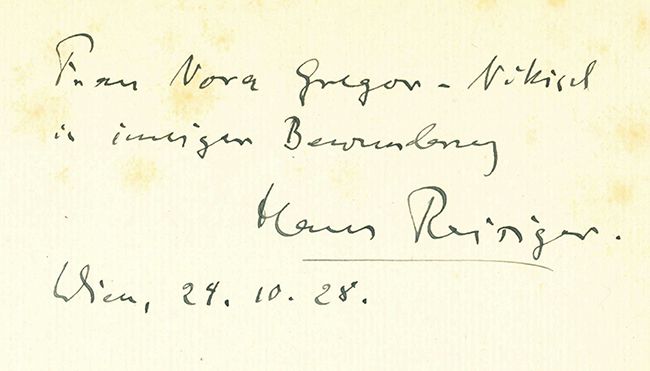 Frau Nora Gregor-Nikisch
in inniger Bewunderung
Hans Reisiger.
Wien, 24. 10. 28.